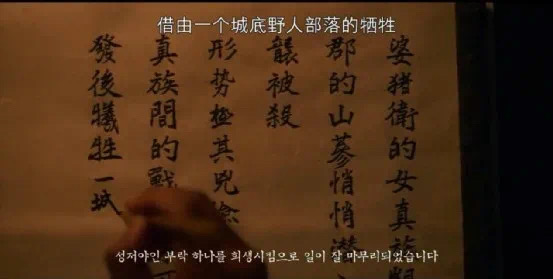 借由一个城底野人部落的牺牲
婆猪衛的女真族
郡的山蔘悄悄
襲被殺
形势極其兇
真族間的戰
發後犧牲一城
성저야인 부락 하나를 희생시킴으로 일이 잘 마무리되었습니다